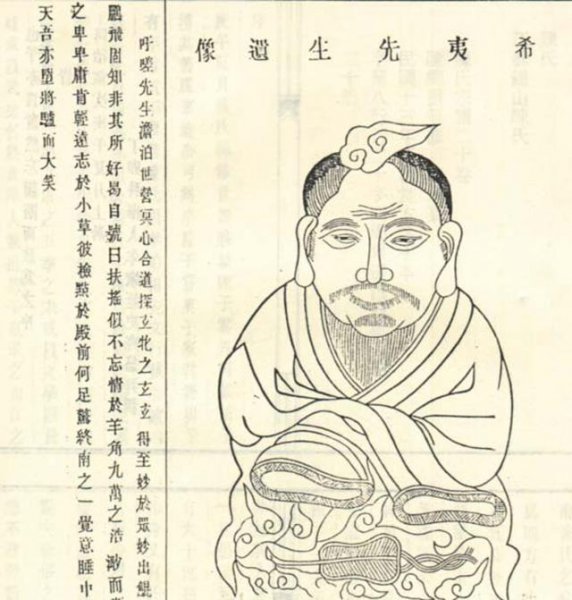 希夷先生遺像
吁嗟先生澹泊世營冥心合道探玄牝之玄玄得至妙於眾妙出鯤
鵬飛固知非其所好曷自號曰扶搖似不忘情於羊角九萬之浩渺而
之卑卑庸肯輕遠志於小草彼檢點於殿前何足驚終南之一覺意睡中
天吾亦墮將驢而大笑